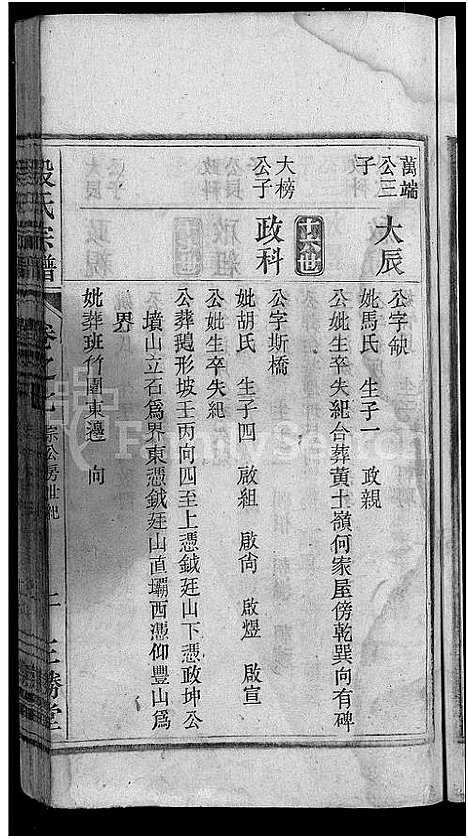 萬端
公三
子
大辰
公字缺
妣馬氏 生子一 政親
公妣生卒失紀合葬黃土嶺何家屋傍乾巽向有碑
十六世
大榜
公子
政科
公字斯橋
妣胡氏 生子四 啟組 啟尙 啟煜 啟宣
公妣生卒失紀
公葬鵝形坡壬丙向四至上憑鉞廷山下憑政坤公
墳山立石爲界東憑鉞廷山直壩西憑仰豐山爲
界
妣葬班竹園東邊 向
段氏宗譜
卷之七
宗公房世紀
三勝堂
FamilySearch